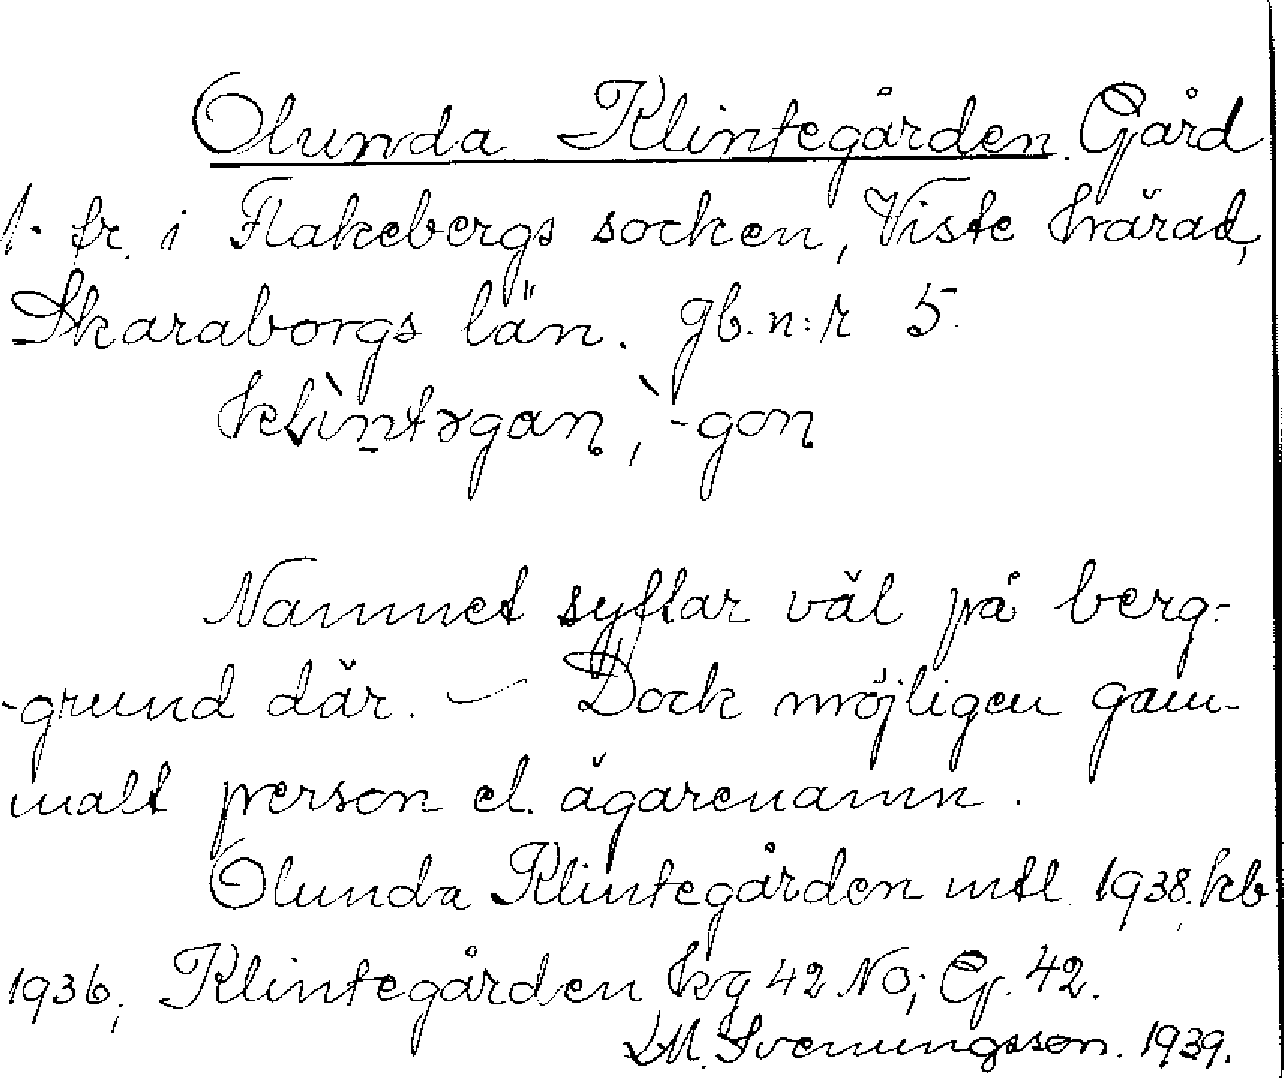 Olunda Klintegården. Gård
1. fr. i Flakebergs socken, Viste härad,
Skaraborgs län. gb. n:r 5.
klìntəgan, `-gon
Namnet syftar väl på berg-
-grund där. – Dock möjligen gam-
malt person el. ägarenamn.
Olunda Klintegården mtl. 1938, kb
1936, Klintegården kg 42 NO; G. 42.
Svenungsson. 1939.